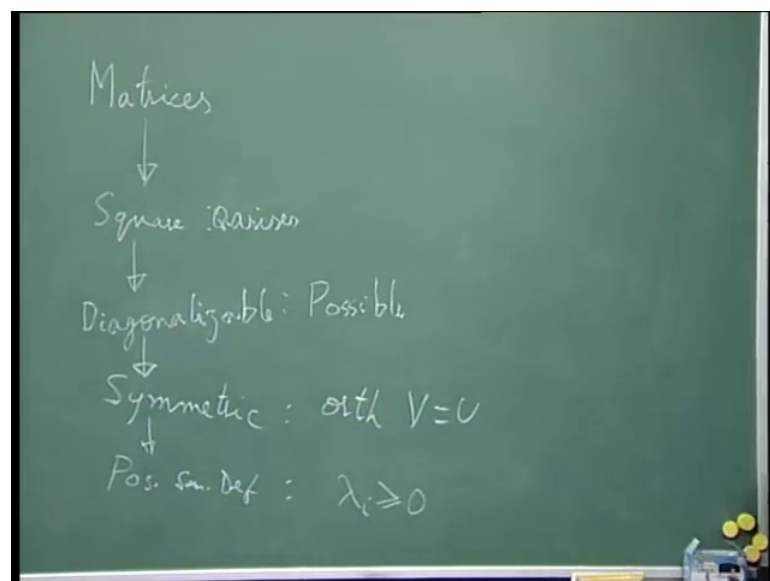 Matrices
Square : Q arises
Diagonalizable : Possible
Symmetric : orth V = U
Pos. Sem. Def : λᵢ ≥ 0